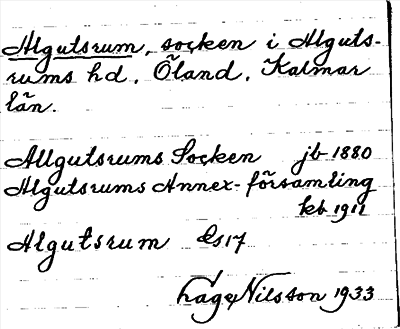 Algutsrum, socken i Alguts-
rums hd, Öland, Kalmar
län.
Allgutsrums Socken jb 1880
Algutsrums Annex-församling
kb 1911
Algutsrum Gs17
Hage Nilsson 1933